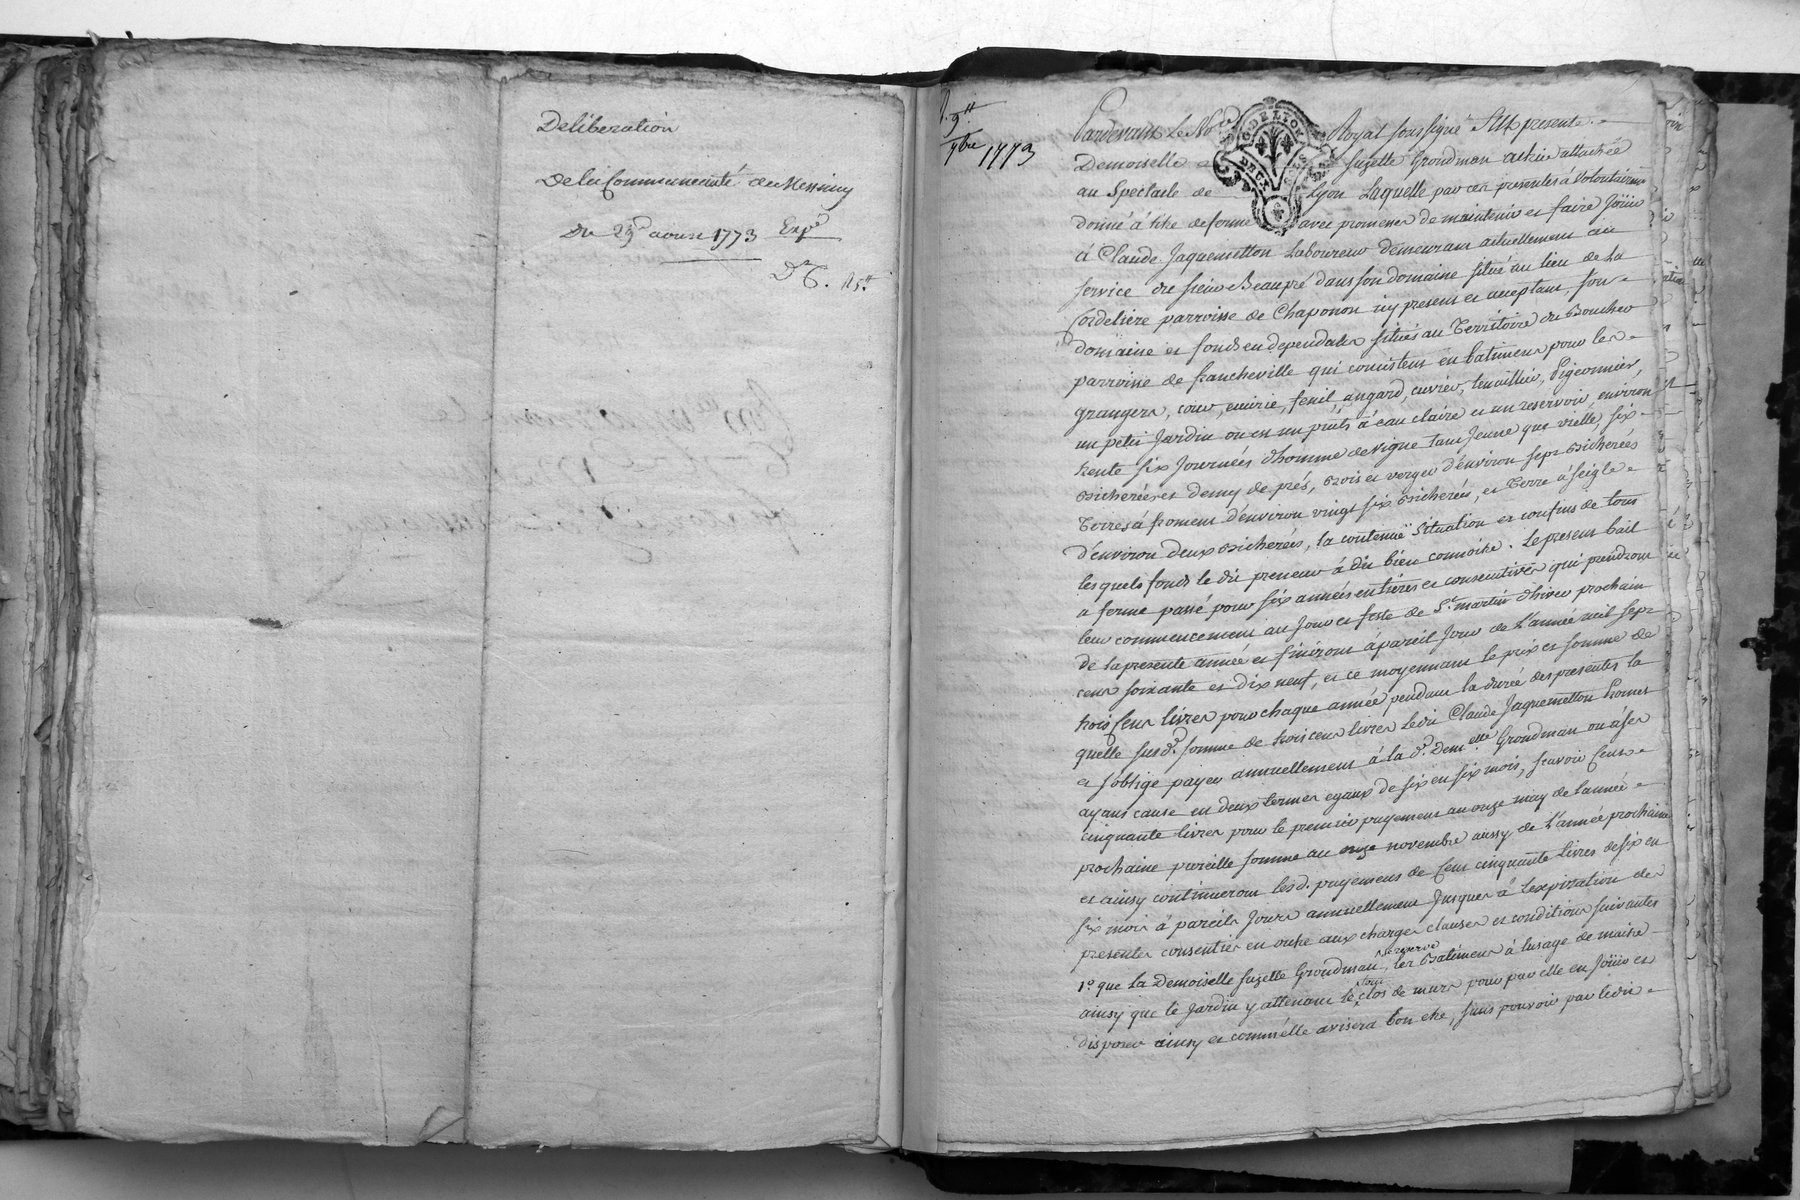 Deliberation
De la Communauté de Messimy
Du 29 aoust 1773 Expé
9
7bre 1773
Pardevant Le No.re Royal soussigné Fut presente
Demoiselle Suzette Grondman actrice attachée
au Spectacle de Lyon Laquelle par ces presentes a Volontairemt
donné à titre de ferme avec promesse de maintenir et faire Joüir
à Claude Jaquemetton Laboureur demeurant actuellement au
service du sieur Beaupré dans son domaine situé au lieu de La
Cordeliere parroisse de Chaponon icy present et acceptant, son
domaine et fonds en dependants situés au Territoire du Boucher
parroisse de francheville qui consistent en batiments pour les
grangers, cour, ecurie, fenil, angard, cuvier, tenaillier, Pigeonnier,
un petit Jardin ou est un puits à eau claire et un reservoir, environ
trente six Journées d'homme de vigne tant Jeune que vieille, six
bicherées et demy de prés, Bois et verger d'environ sept Bicherées
Terres à froment d'environ vingt six Bicherées, et Terre à seigle
d'environ deux bicherées, la contenüe Situation et confins de tous
lesquels fonds le dit preneur à dit bien connoitre. Le present bail
a ferme passé pour six années entieres et consecutives qui prendront
leur commencement au Jour et feste de St. martin d'hiver prochain
de la presente année et finiront à pareil Jour de L'année mil sept
cent soixante et dix neuf, et ce moyennant le prix et somme de
trois Cent livres pour chaque année pendant la durée des presentes la
quelle susd. somme de trois cent livres Ledit Claude Jaquemetton Promet
et s'oblige payer annuellement à la d. Dem.elle Grondman ou à ses
ayant cause en deux termes egaux de six en six mois, scavoir Cent
cinquante livres pour le premier payement au onze may de l'année
prochaine pareille somme au onze novembre aussy de L'année prochaine
et ainsy continueront lesd. payements de Cent cinquante livres de six en
six mois à pareils Jours annuellement Jusques à l'expiration des
presentes consenties en outre aux charges clauses et conditions suivantes
1º que la Demoiselle Suzette Grondman se reserve les Batiments à l'usage de maitre
ainsy que le Jardin y attenant le tout clos de murs pour par elle en Joüir et
disposer ainsy et comm'elle avisera bon etre, sans pouvoir par ledit